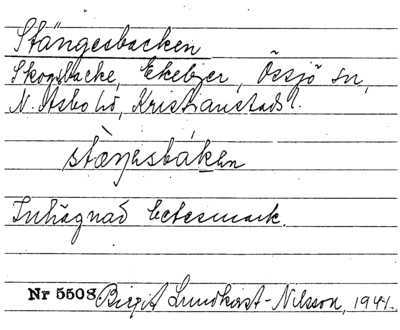 Stängesbacken
Skogsbacke, Ekeberg, Össjö sn,
N. Åsbo hd, Kristianstads l.
stæŋasbákan
Inhägnad betesmark.
Nr 5508 Birgit Lundkvist-Nilsson, 1941.